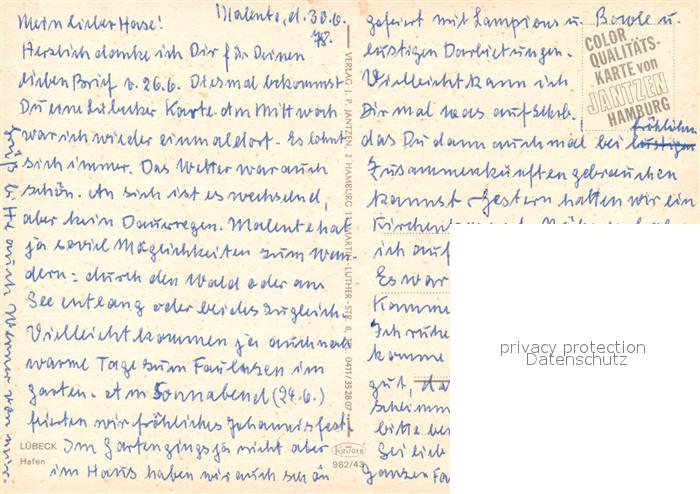 Malente, d. 30.6.
78.
Mein lieber Hase!
Herzlich danke ich Dir für Deinen
lieben Brief v. 26.6. Diesmal bekommst
Du eine Lübecker Karte. Am Mittwoch
war ich wieder einmal dort. Es lohnt
sich immer. Das Wetter war auch
schön. An sich ist es wechselnd,
aber kein Dauerregen. Malente hat
ja soviel Möglichkeiten zum Wan-
dern: durch den Wald oder am
See entlang oder beides zugleich.
Vielleicht kommen ja auch noch
warme Tage zum Faulenzen im
Garten. Am Sonnabend (24.6.)
feierten wir fröhliches Johannisfest.
Im Garten gings ja nicht aber
im Haus haben wir auch schön
Grüß bitte auch Werner von mir.
LÜBECK
Hafen
VERLAG J. P. JANTZEN, 2 HAMBURG 1 MARTIN-LUTHER-STR. 8, 0411/35 28 07
KRÜGER
982/43
gefeiert mit Lampions u. Bowle u.
lustigen Darbietungen.
Vielleicht kann ich
Dir mal was aufschrb.
das Du dann auch mal bei lustigen
fröhlichen
Zusammenkünften gebrauchen
kannst. Gestern hatten wir ein
ich auf
Es war
Komme
Ich ruhe
komme
gut, da
schlimm
bitte be
Sei lieb
ganzen Fa
COLOR
QUALITÄTS-
KARTE von
JANTZEN
HAMBURG
privacy protection
Datenschutz